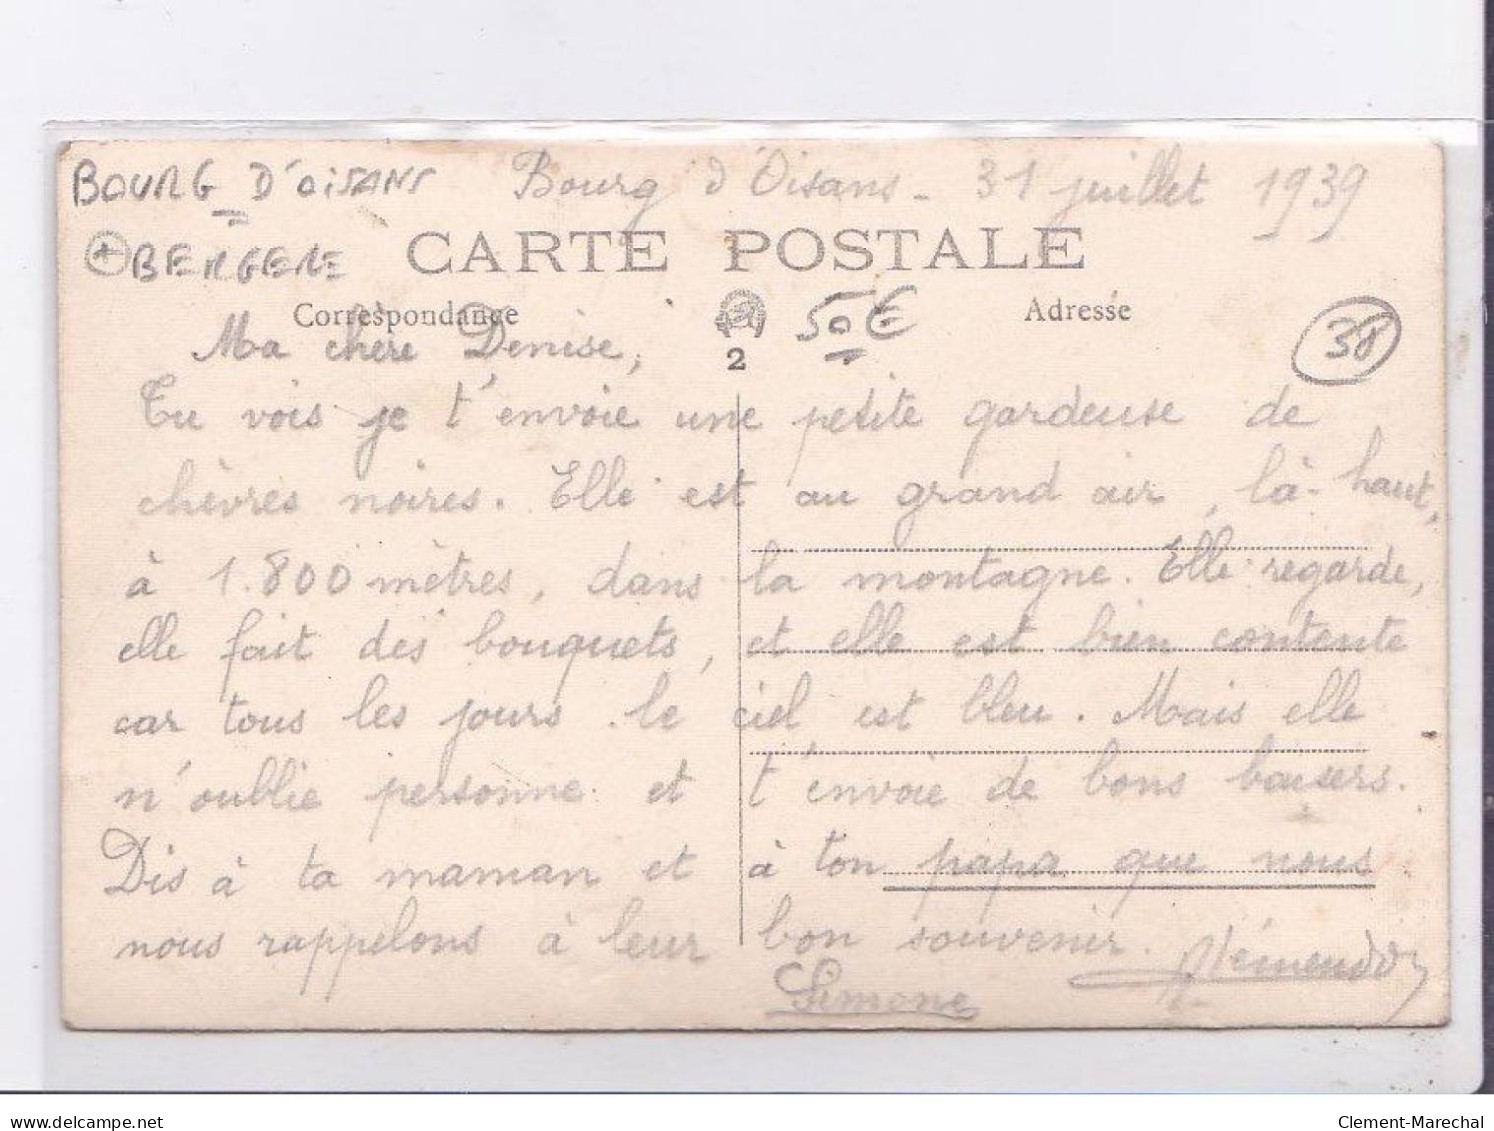 BOURG D'OISANS Bourg d'Oisans - 31 juillet 1939
+ BERGERE CARTE POSTALE
Correspondance Adresse
50€ 38
2
Ma chère Denise,
Tu vois je t'envoie une petite gardeuse de
chèvres noires. Elle est au grand air, là-haut,
à 1.800 mètres, dans la montagne. Elle regarde,
elle fait des bouquets, et elle est bien contente
car tous les jours le ciel est bleu. Mais elle
n'oublie personne et t'envoie de bons baisers.
Dis à ta maman et à ton papa que nous
nous rappelons à leur bon souvenir.
Simone
delcampe.net
Clement-Marechal